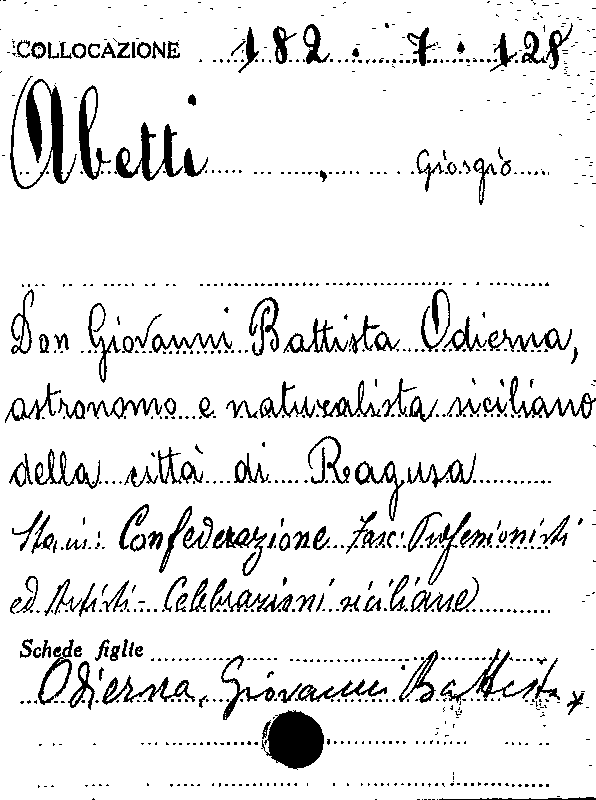 COLLOCAZIONE 182. 7. 128
Abetti, Giorgio
Don Giovanni Battista Odierna,
astronomo e naturalista siciliano
della città di Ragusa
Sta in: Confederazione Fasc: Professionisti
ed Artisti - Celebrazioni siciliane
Schede figlie
Odierna, Giovanni Battista *